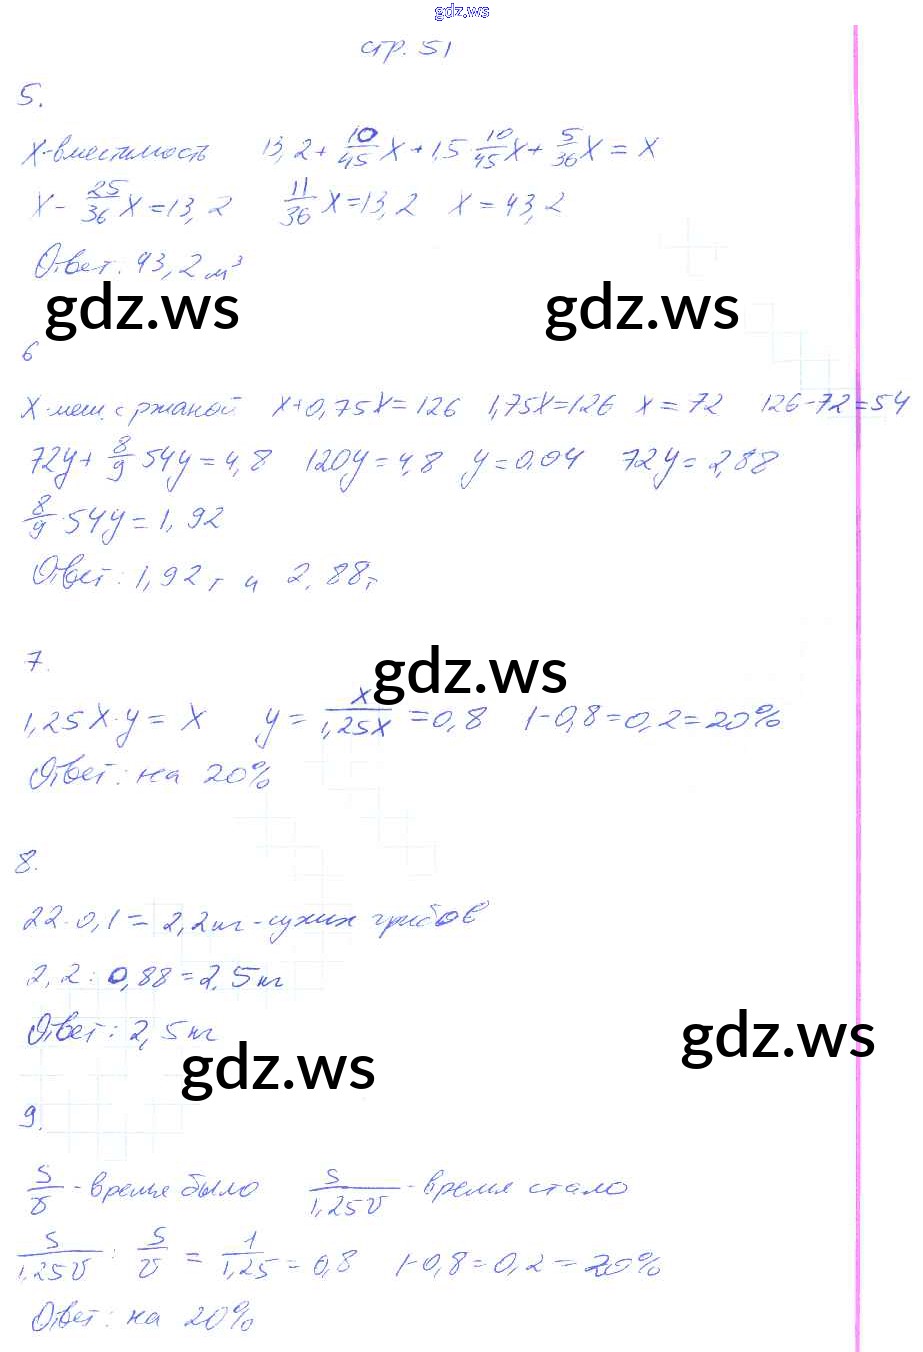 gdz.ws
стр. 51
5.
x-вместимость 13,2 + 10/45 x + 1,5 · 10/45 x + 5/36 x = x
x - 25/36 x = 13,2 11/36 x = 13,2 x = 43,2
Ответ: 43,2 м³
gdz.ws gdz.ws
6
x-меш. с ржаной x+0,75x=126 1,75x=126 x=72 126-72=54
72y + 8/9 · 54y = 4,8 120y = 4,8 y = 0.04 72y = 2,88
8/9 · 54y = 1,92
Ответ: 1,92т и 2,88т
7.
gdz.ws
1,25x · y = x y = x/1,25x = 0,8 1-0,8=0,2=20%
Ответ: на 20%
8.
22·0,1 = 2,2кг - сухих грибов
2,2 : 0,88 = 2,5кг
Ответ: 2,5кг
gdz.ws gdz.ws
9.
S/v - время было S/1,25v - время стало
S/1,25v : S/v = 1/1,25 = 0,8 1-0,8=0,2=20%
Ответ: на 20%